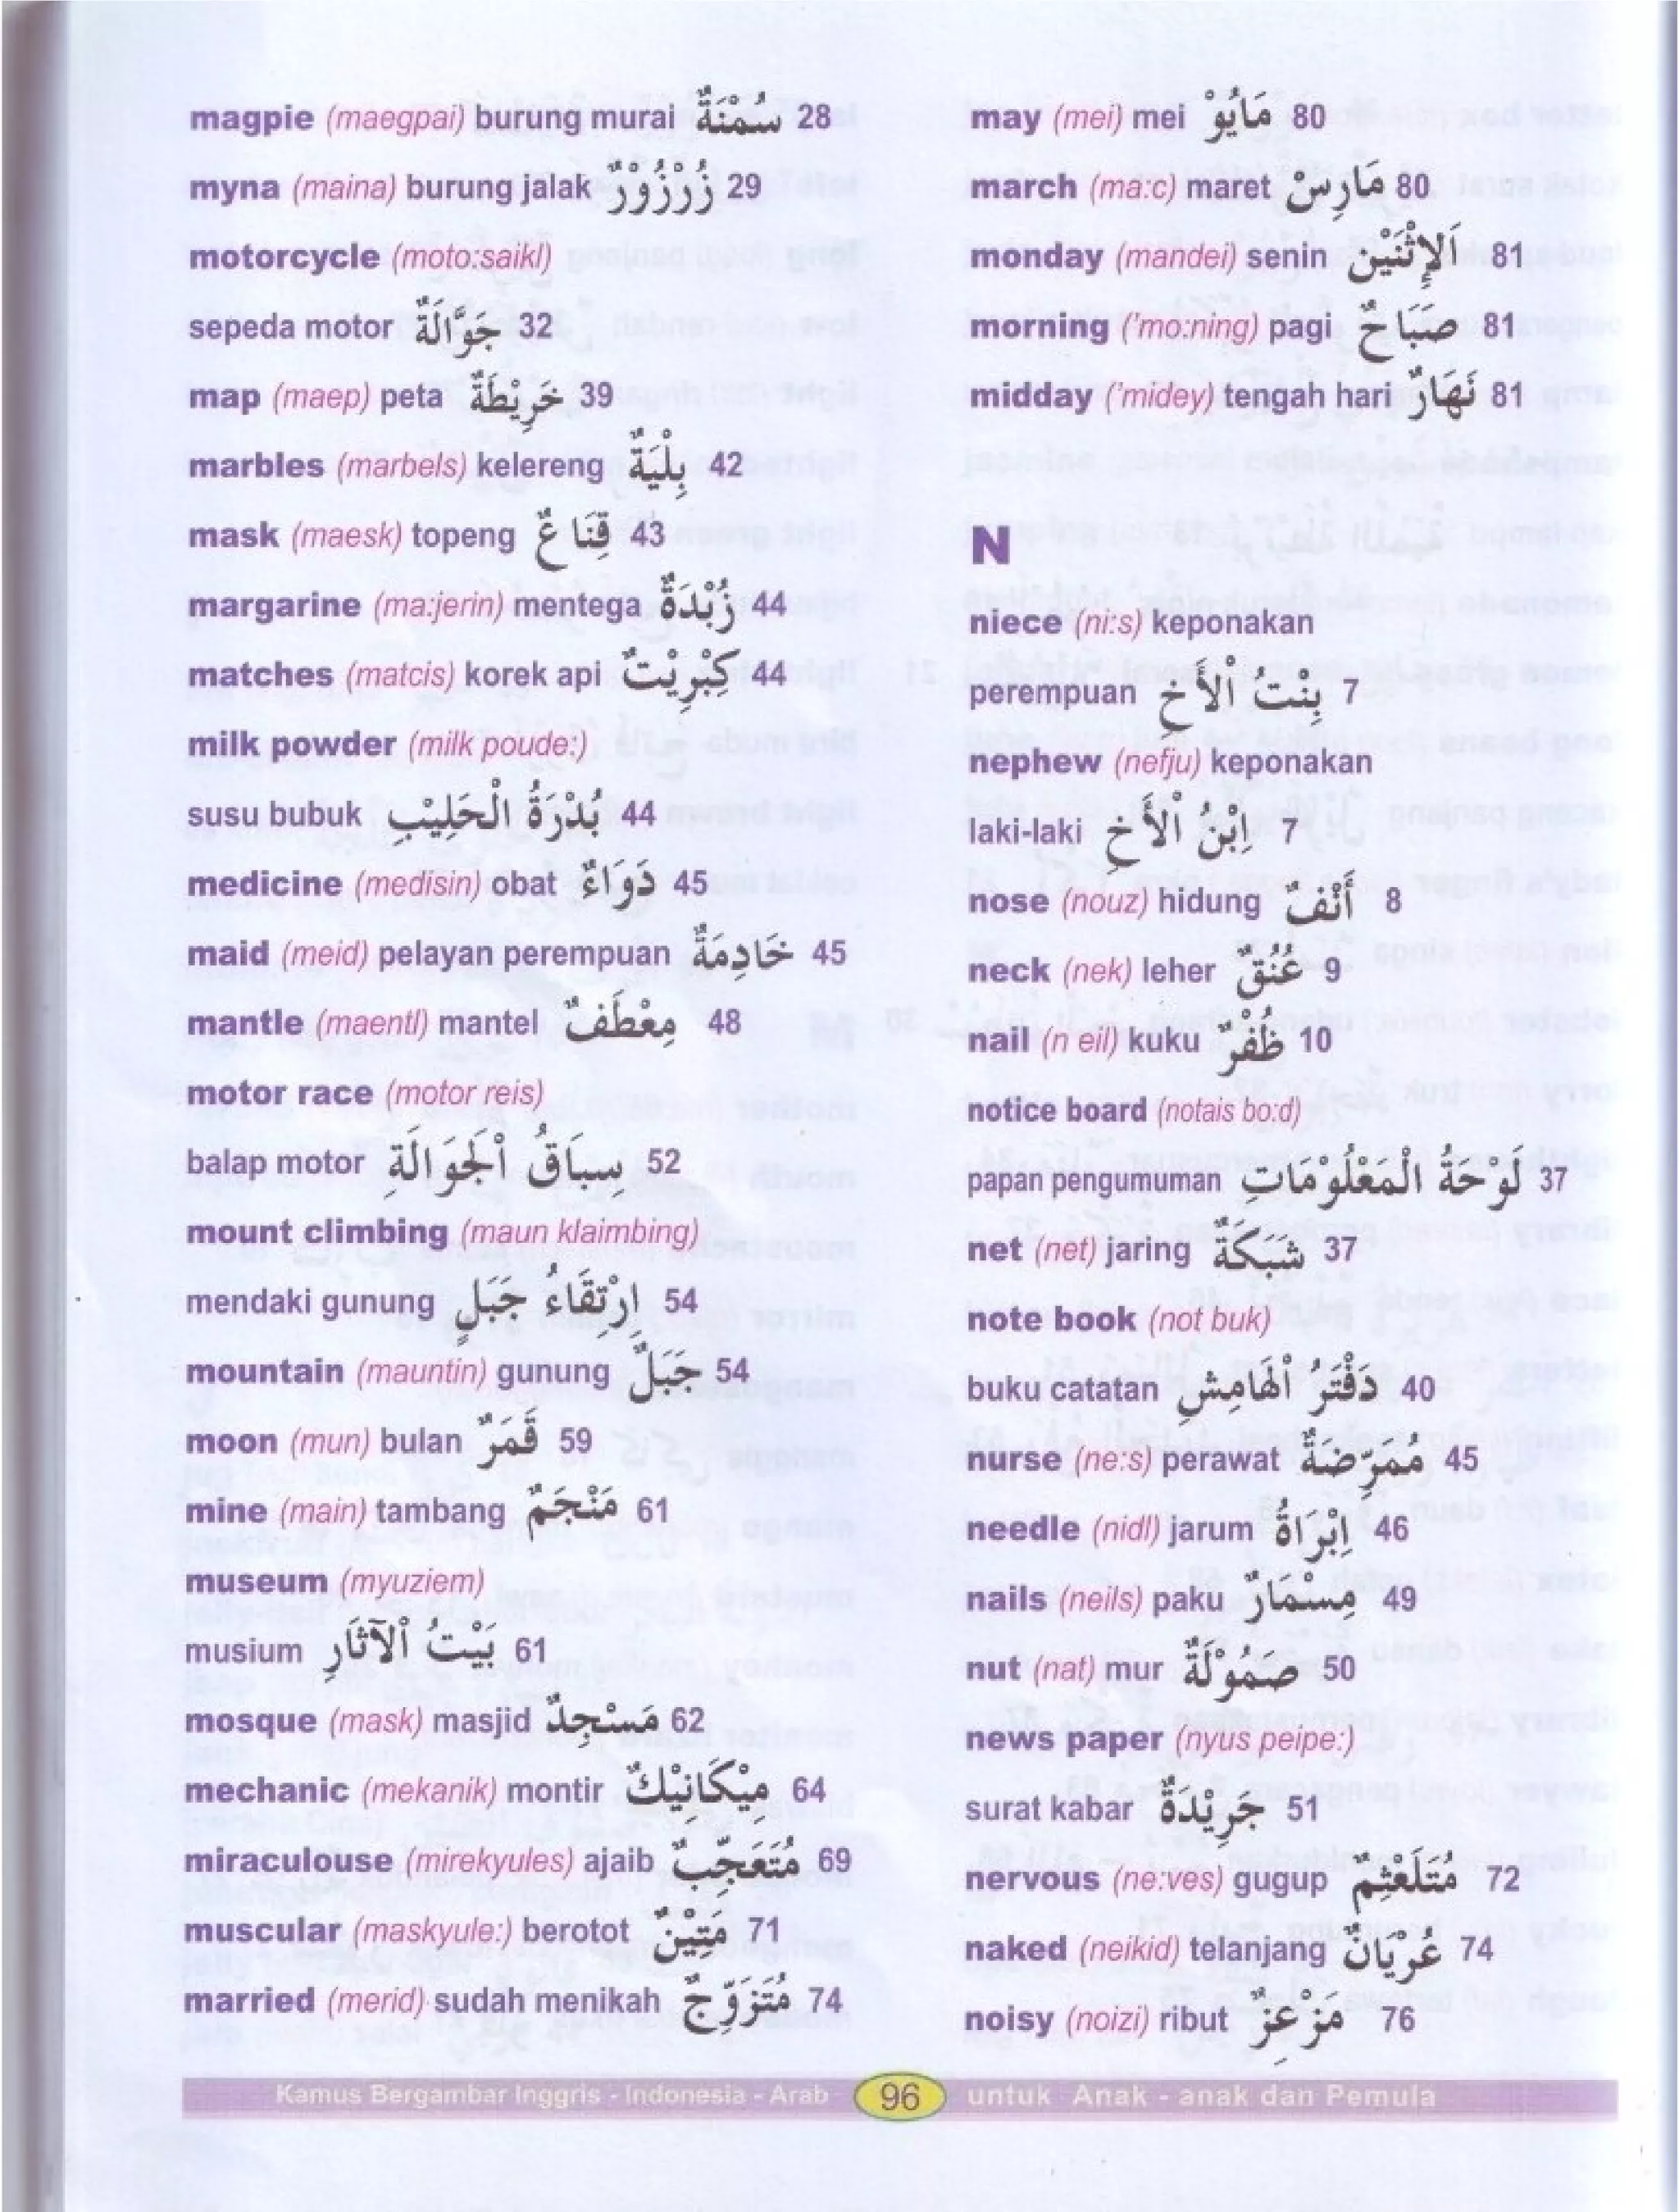 magpie (maegpai) burung murai سُمْنَةٌ 28
myna (maina) burung jalak زُرْزُوْرٌ 29
motorcycle (moto:saikl)
sepeda motor جَوَّالَةٌ 32
map (maep) peta خَرِيْطَةٌ 39
marbles (marbels) kelereng بِلْيَةٌ 42
mask (maesk) topeng قِنَاعٌ 43
margarine (ma:jerin) mentega زُبْدَةٌ 44
matches (matcis) korek api كِبْرِيْتٌ 44
milk powder (milk poude:)
susu bubuk بُدْرَةُ الْحَلِيْبِ 44
medicine (medisin) obat دَوَاءٌ 45
maid (meid) pelayan perempuan خَادِمَةٌ 45
mantle (maentl) mantel مِعْطَفٌ 48
motor race (motor reis)
balap motor سِبَاقُ الْجَوَالَةِ 52
mount climbing (maun klaimbing)
mendaki gunung اِرْتِقَاءُ جَبَلٍ 54
mountain (mauntin) gunung جَبَلٌ 54
moon (mun) bulan قَمَرٌ 59
mine (main) tambang مَنْجَمٌ 61
museum (myuziem)
musium بَيْتُ اْلآثَارِ 61
mosque (mask) masjid مَسْجِدٌ 62
mechanic (mekanik) montir مِيْكَانِيْكٌ 64
miraculouse (mirekyules) ajaib مُتَعَجِّبٌ 69
muscular (maskyule:) berotot مَتِيْنٌ 71
married (merid) sudah menikah مُتَزَوِّجٌ 74
may (mei) mei مَايُوْ 80
march (ma:c) maret مَارِسْ 80
monday (mandei) senin اَلْإِثْنَيْنِ 81
morning ('mo:ning) pagi صَبَاحٌ 81
midday ('midey) tengah hari نَهَارٌ 81
N
niece (ni:s) keponakan
perempuan بِنْتُ اْلأَخِ 7
nephew (nefju) keponakan
laki-laki اِبْنُ اْلأَخِ 7
nose (nouz) hidung أَنْفٌ 8
neck (nek) leher عُنُقٌ 9
nail (n eil) kuku ظُفْرٌ 10
notice board (notais bo:d)
papan pengumuman لَوْحَةُ الْمَعْلُوْمَاتِ 37
net (net) jaring شَبَكَةٌ 37
note book (not buk)
buku catatan دَفْتَرُ اْلهَامِشِ 40
nurse (ne:s) perawat مُمَرِّضَةٌ 45
needle (nidl) jarum اِبْرَاةٌ 46
nails (neils) paku مِسْمَارٌ 49
nut (nat) mur صَمُوْلَةٌ 50
news paper (nyus peipe:)
surat kabar جَرِيْدَةٌ 51
nervous (ne:ves) gugup مُتَلَعْثِمٌ 72
naked (neikid) telanjang عُرْيَانٌ 74
noisy (noizi) ribut مَزْعِزٌ 76
Kamus Bergambar Inggris - Indonesia - Arab 96 untuk Anak - anak dan Pemula